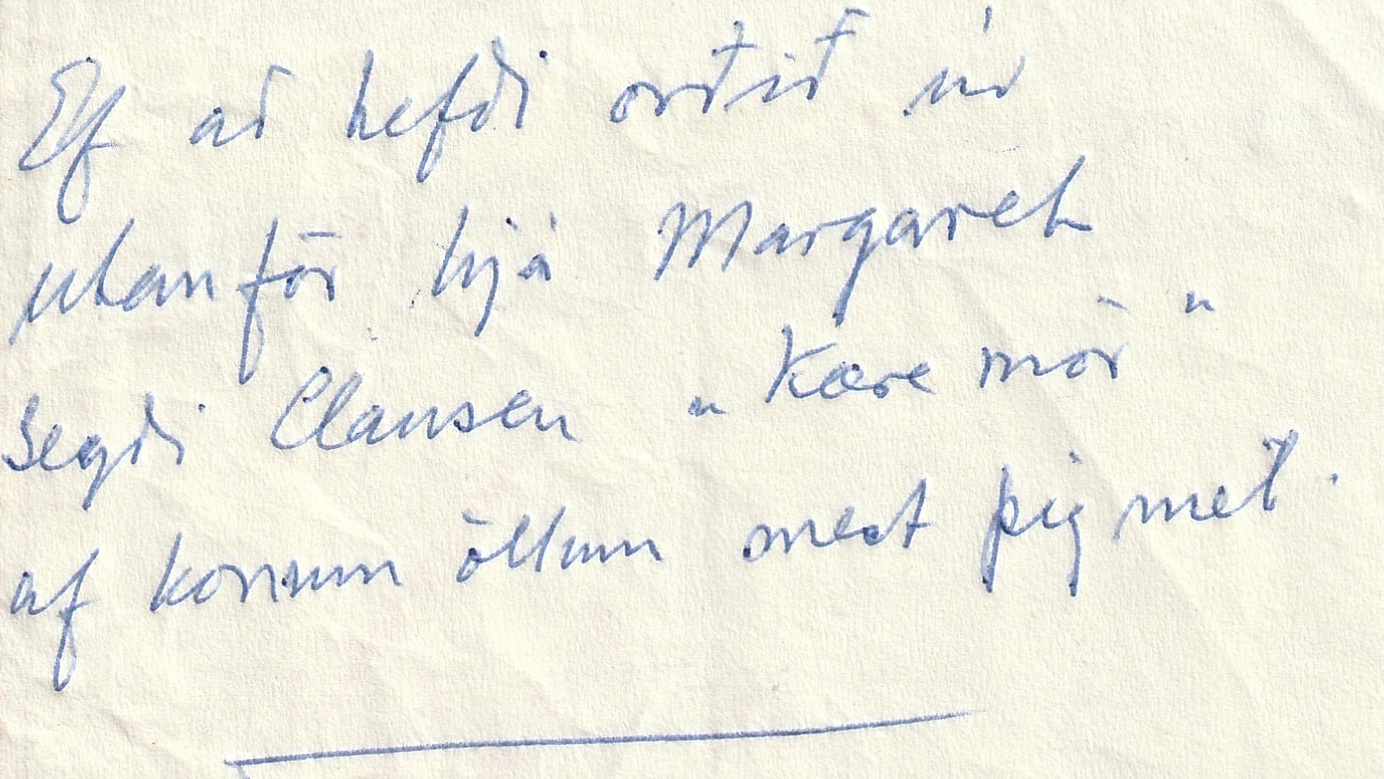 Ef að hefði orðið úr
utanför hjá Margareth
Segði Clausen „Kære mör"
af konum öllum mest þig met.